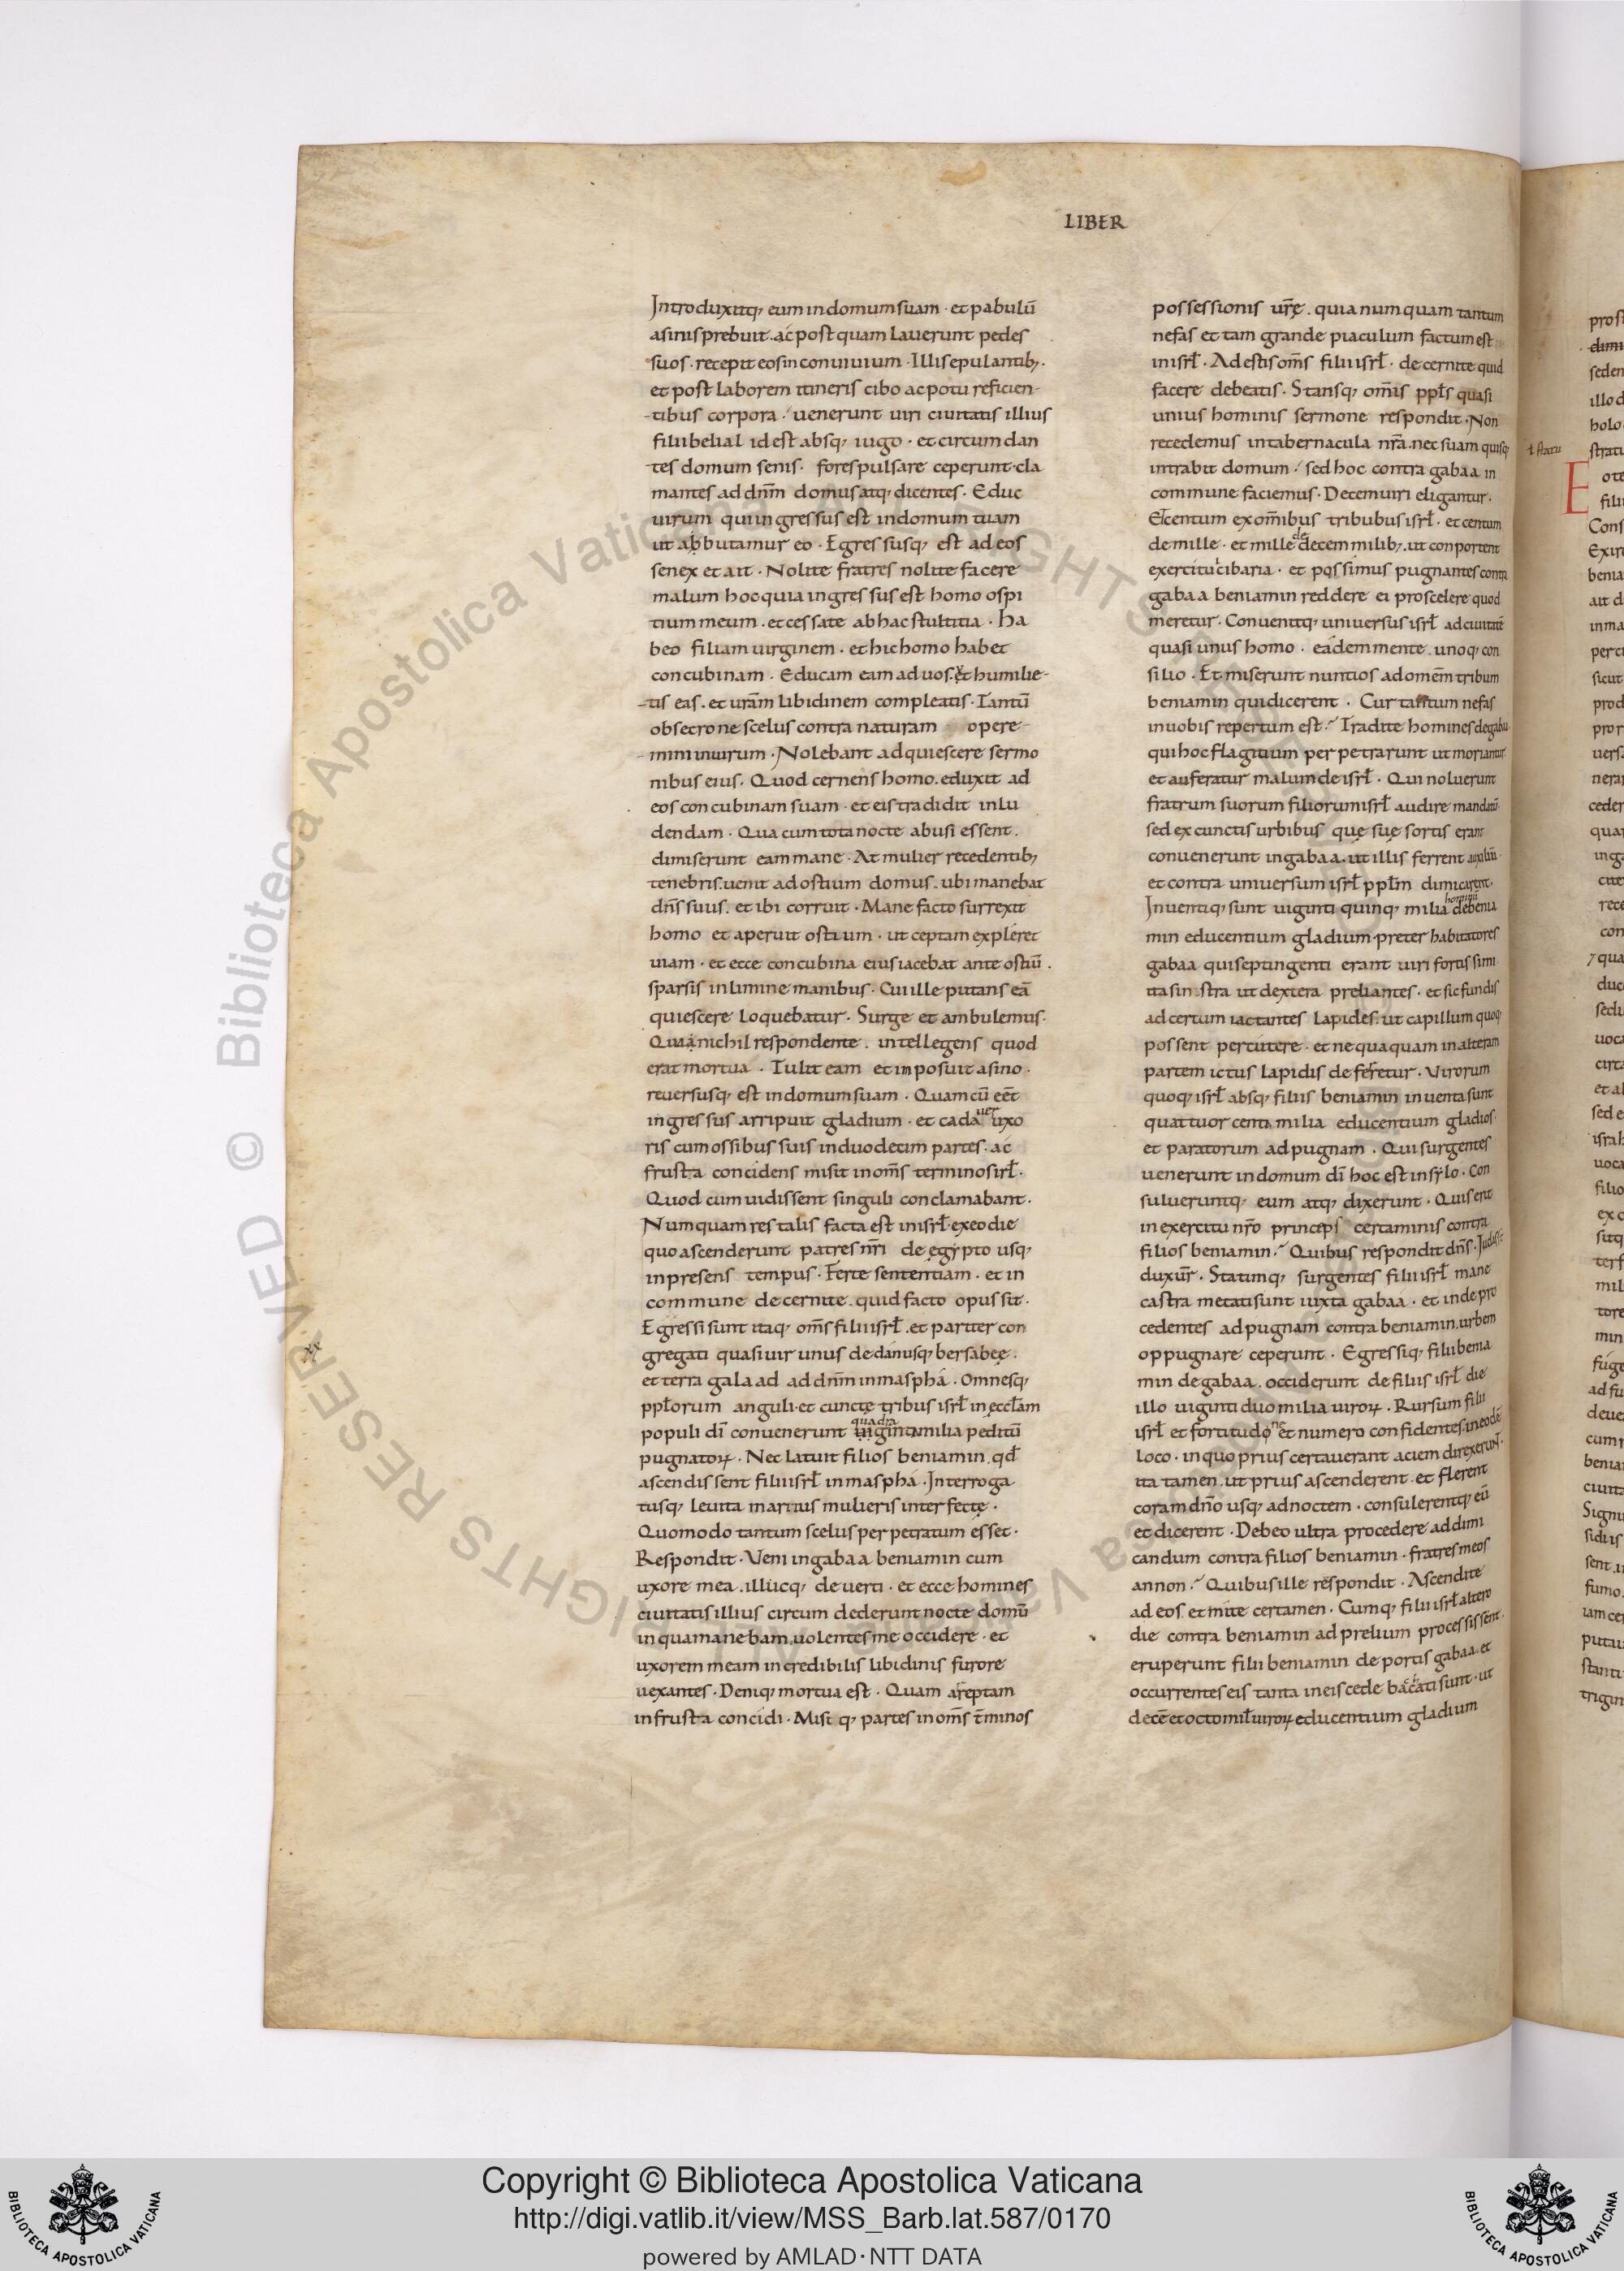 LIBER
Introduxitq; eum in domum suam · et pabulū
asinis prebuit · ac postquam lauerunt pedes
suos · recepit eos in conuiuium · Illis epulantib; ·
et post laborem itineris cibo ac potu reficien-
-tibus corpora · uenerunt uiri ciuitatis illius
filii belial id est absq; iugo · et circumdan
tes domum senis · fores pulsare ceperunt · cla
mantes ad dnm̄ domus atq; dicentes · Educ
uirum qui ingressus est in domum tuam
ut abbutamur eo · Egressusq; est ad eos
senex et ait · Nolite fratres nolite facere
malum hoc quia ingressus est homo ospi
tium meum · et cessate ab hac stultitia · Ha
beo filiam uirginem · et hic homo habet
concubinam · Educam eam ad uos · et humilie-
-tis eas · et urām libidinem compleatis · Tantū
obsecro ne scelus contra naturam opere-
-mini in uirum · Nolebant adquiescere sermo
nibus eius · Quod cernens homo · eduxit ad
eos concubinam suam · et eis tradidit inlu
dendam · Qua cum tota nocte abusi essent ·
dimiserunt eam mane · At mulier recedentib;
tenebris · uenit ad ostium domus · ubi manebat
dn̄s suus · et ibi corruit · Mane facto surrexit
homo et aperuit ostium · ut ceptam expleret
uiam · et ecce concubina eius iacebat ante ostiū ·
sparsis in limine manibus · Cui ille putans eā
quiescere loquebatur · Surge et ambulemus ·
Qua nichil respondente · intellegens quod
erat mortua · Tulit eam et imposuit asino ·
reuersusq; est in domum suam · Quam cū eēt
ingressus arripuit gladium · et cadauer uxo
ris cum ossibus suis in duodecim partes · ac
frusta concidens misit in om̄s terminos isrł ·
Quod cum uidissent singuli conclamabant ·
Numquam res talis facta est in isrł · ex eo die
quo ascenderunt patres nr̄i de egypto usq;
in presens tempus · Ferte sententiam · et in
commune decernite · quid facto opus sit ·
Egressi sunt itaq; om̄s filii isrł · et pariter con
gregati quasi uir unus de dan usq; bersabee ·
et terra galaad ad dnm̄ in maspha · Omnesq;
ppłorum anguli · et cunctę tribus isrł in ęccłam
populi dī conuenerunt quadraginta milia peditū
pugnatoꝝ · Nec latuit filios beniamin · qđ
ascendissent filii isrł in maspha · Interroga
tusq; leuita maritus mulieris interfectę ·
Quomodo tantum scelus perpetratum esset ·
Respondit · Veni in gabaa beniamin cum
uxore mea · illucq; deuerti · et ecce homines
ciuitatis illius circumdederunt nocte domū
in qua manebam · uolentes me occidere · et
uxorem meam incredibilis libidinis furore
uexantes · Deniq; mortua est · Quam areptam
in frusta concidi · Misiq; partes in om̄s t̄minos
possessionis ur̄ę · quia numquam tantum
nefas et tam grande piaculum factum est
in isrł · Adestis om̄s filii isrł · decernite quid
facere debeatis · Stansq; om̄is ppłs quasi
unius hominis sermone respondit · Non
recedemus in tabernacula nr̄a · nec suam quisq;
intrabit domum · sed hoc contra gabaa in
commune faciemus · Decem uiri eligantur ·
Et centum ex om̄ibus tribubus isrł · et centum
de mille · et mille de decem milib; · ut conportent
exercitui cibaria · et possimus pugnantes contra
gabaa beniamin reddere ei pro scelere quod
meretur · Conuenitq; uniuersus isrł ad ciuitatē
quasi unus homo · eadem mente · unoq; con
silio · Et miserunt nuntios ad omēm tribum
beniamin qui dicerent · Cur tantum nefas
in uobis repertum est · Tradite homines de gabaa
qui hoc flagitium perpetrarunt ut moriantur
et auferatur malum de isrł · Qui noluerunt
fratrum suorum filiorum isrł audire mandatū
sed ex cunctis urbibus quę suę sortis erant
conuenerunt in gabaa · ut illis ferrent auxiliū ·
et contra uniuersum isrł ppłm dimicarent ·
Inuentiq; sunt uiginti quinq; milia hominū de benia
min educentium gladium · preter habitatores
gabaa qui septingenti erant uiri fortissimi
ita sinistra ut dextera preliantes · et sic fundis
ad certum iactantes lapides · ut capillum quoq;
possent percutere · et nequaquam in alteram
partem ictus lapidis deferetur · Virorum
quoq; isrł absq; filiis beniamin inuenta sunt
quattuor centa milia educentium gladios ·
et paratorum ad pugnam · Qui surgentes
uenerunt in domum dī hoc est in sylo · Con
sulueruntq; eum atq; dixerunt · Quis erit
in exercitu nr̄o princeps certaminis contra
filios beniamin · Quibus respondit dn̄s · Iudas
dux ur̄ · Statimq; surgentes filii isrł mane
castra metati sunt iuxta gabaa · et inde pro
cedentes ad pugnam contra beniamin · urbem
oppugnare ceperunt · Egressiq; filii benia
min de gabaa · occiderunt de filiis isrł die
illo uiginti duo milia uiroꝝ · Rursum filii
isrł et fortitudine et numero confidentes · in eodē
loco · in quo prius certauerant aciem direxerunt ·
ita tamen · ut prius ascenderent · et flerent
coram dn̄o usq; ad noctem · consulerentq; eū
et dicerent · Debeo ultra procedere ad dimi
candum contra filios beniamin · fratres meos
an non · Quibus ille respondit · Ascendite
ad eos et inite certamen · Cumq; filii isrł altero
die contra beniamin ad prelium processissent ·
eruperunt filii beniamin de portis gabaa · et
occurrentes eis tanta in eis cede bacati sunt · ut
decē et octo mił uiroꝝ educentium gladium
ł statu
E
Copyright © Biblioteca Apostolica Vaticana
http://digi.vatlib.it/view/MSS_Barb.lat.587/0170
powered by AMLAD·NTT DATA
BIBLIOTECA APOSTOLICA VATICANA
BIBLIOTECA APOSTOLICA VATICANA
© Biblioteca Apostolica Vaticana ALL RIGHTS RESERVED